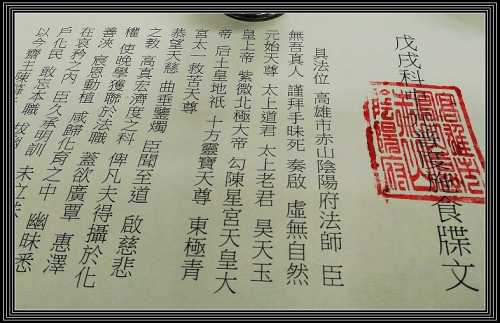 戊戌科中普度施食牒文
陰陽府
具法位 高雄市赤山陰陽府法師 臣
無吾真人 謹拜手昧死 奏啟 虛無自然
元始天尊 太上道君 太上老君 昊天玉
皇上帝 紫微北極大帝 勾陳星宮天皇大
帝 后土皇地祇 十方靈寶天尊 東極青
宮太一救苦天尊
恭望天慈 曲垂鑒燭 臣聞至道 啟慈悲
之教 高真宏濟度之科 俾凡夫得攝於化
權 使晚學獲聯於法職 蓋欲廣覃 惠澤
善浹 宸恩動植 咸歸化育之中 幽昧悉
在哀矜之內 臣久承明訓 未立
戶化民 敢忘本職
以今齋主陳